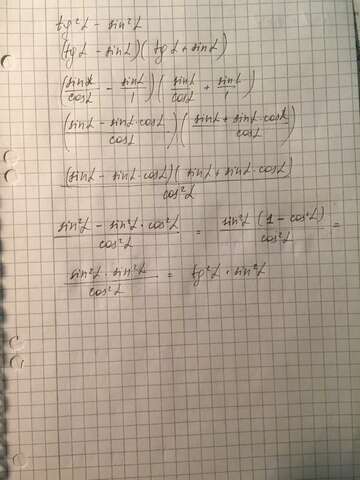 tg²α - sin²α
(tgα - sinα)(tgα + sinα)
(sinα/cosα - sinα/1)(sinα/cosα + sinα/1)
((sinα - sinα·cosα)/cosα)((sinα + sinα·cosα)/cosα)
(sinα - sinα·cosα)(sinα + sinα·cosα)/cos²α
(sin²α - sin²α·cos²α)/cos²α = sin²α(1 - cos²α)/cos²α =
sin²α·sin²α/cos²α = tg²α·sin²α